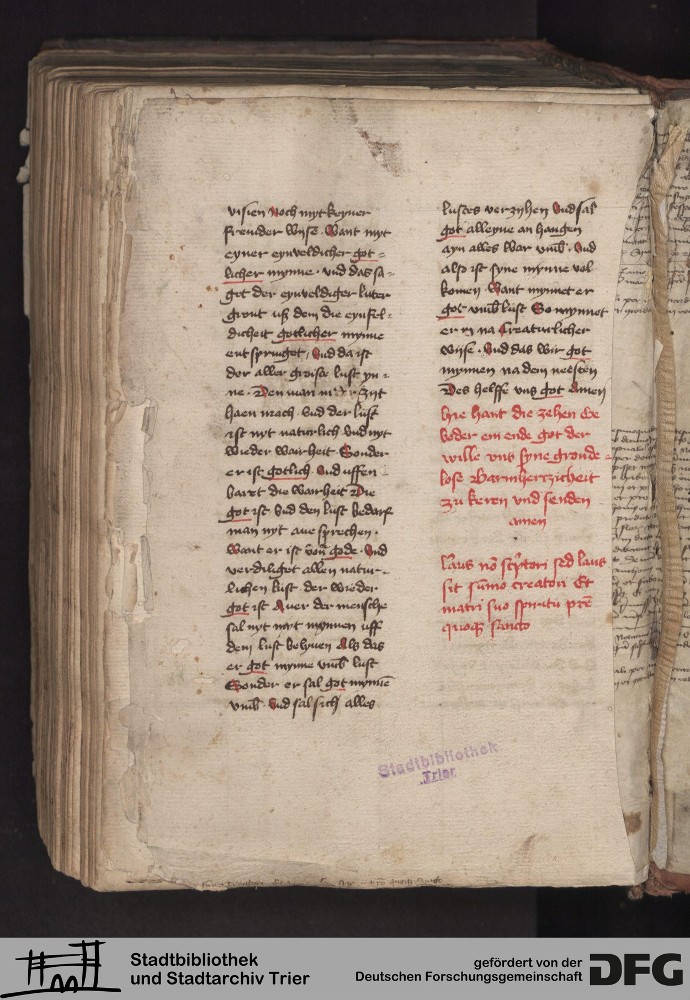 visien noch myt keyner
fremder wyse. Want myt
eyner eynveldicher got=
licher mynne. vnd das sa=
get der eynveldiger luter
gront uß dem die eynfel=
dicheit gotlicher mynne
entspruget, vnd da ist
der aller groiste lust yn=
ne. Den man in der zyt
haen mach. vnd der lust
ist nyt naturlich vnd nyt
wieder wairheit. Sonder
er ist gotlich. vnd uffen
bairt die warheit Die
got ist vnd den lust bedarf
man nyt aue sprechen.
Want er ist von gode. vnd
verdiliget allen natur=
lichen lust der wieder
got ist Auer der mensche
sal nyt myt mynnen uff
dem lust belyuen Als das
er got mynne vmb lust
Sonder er sal got mynne
vmb. vnd sal sich alles
lustes verzyhen vnd sal
got alleyne an hangen
ayn alles war vmb. vnd
also ist syne mynne vol
komen. Want mynnet er
got vmb lust So mynnet
er yn na Creaturlicher
wyse. vnd das wir got
mynnen na dem neesten
Des helffe vns got Amen
hie hant die zehen Ge
boder ein ende got der
wille vns syne gronde=
lose Barmhertzicheit
zu keren vnd senden
amen
Laus no scptori sed laus
sit sumo creatori Et
matri suo spiritu pre
quoq sancto
Stadtbibliothek
Trier
Stadtbibliothek
und Stadtarchiv Trier
gefördert von der
Deutschen Forschungsgemeinschaft
DFG